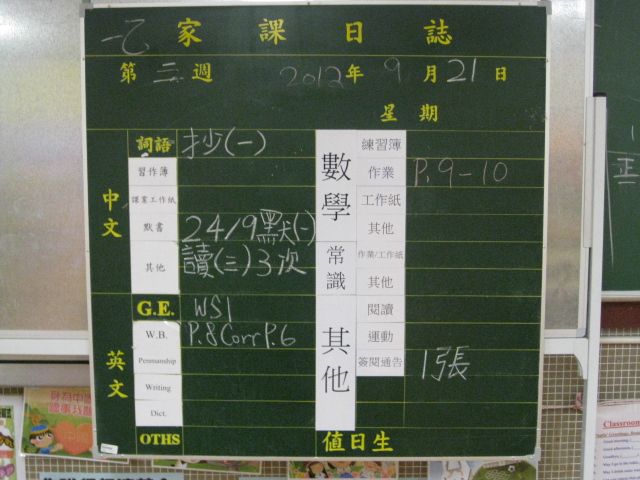 一乙 家課日誌
第 三 週 2012 年 9 月 21 日
星期
中文
詞語 抄(一)
習作簿
課業工作紙
默書 24/9默(一)
其他 讀(三)3次
英文
G.E. WS1
W.B. P.8 Corr P.6
Penmanship
Writing
Dict.
OTHS
數學
練習簿
作業 P.9-10
工作紙
其他
常識
作業/工作紙
其他
其他
閱讀
運動
簽閱通告 1張
值日生
Classroom
Good morning
Good afternoon
Goodbye